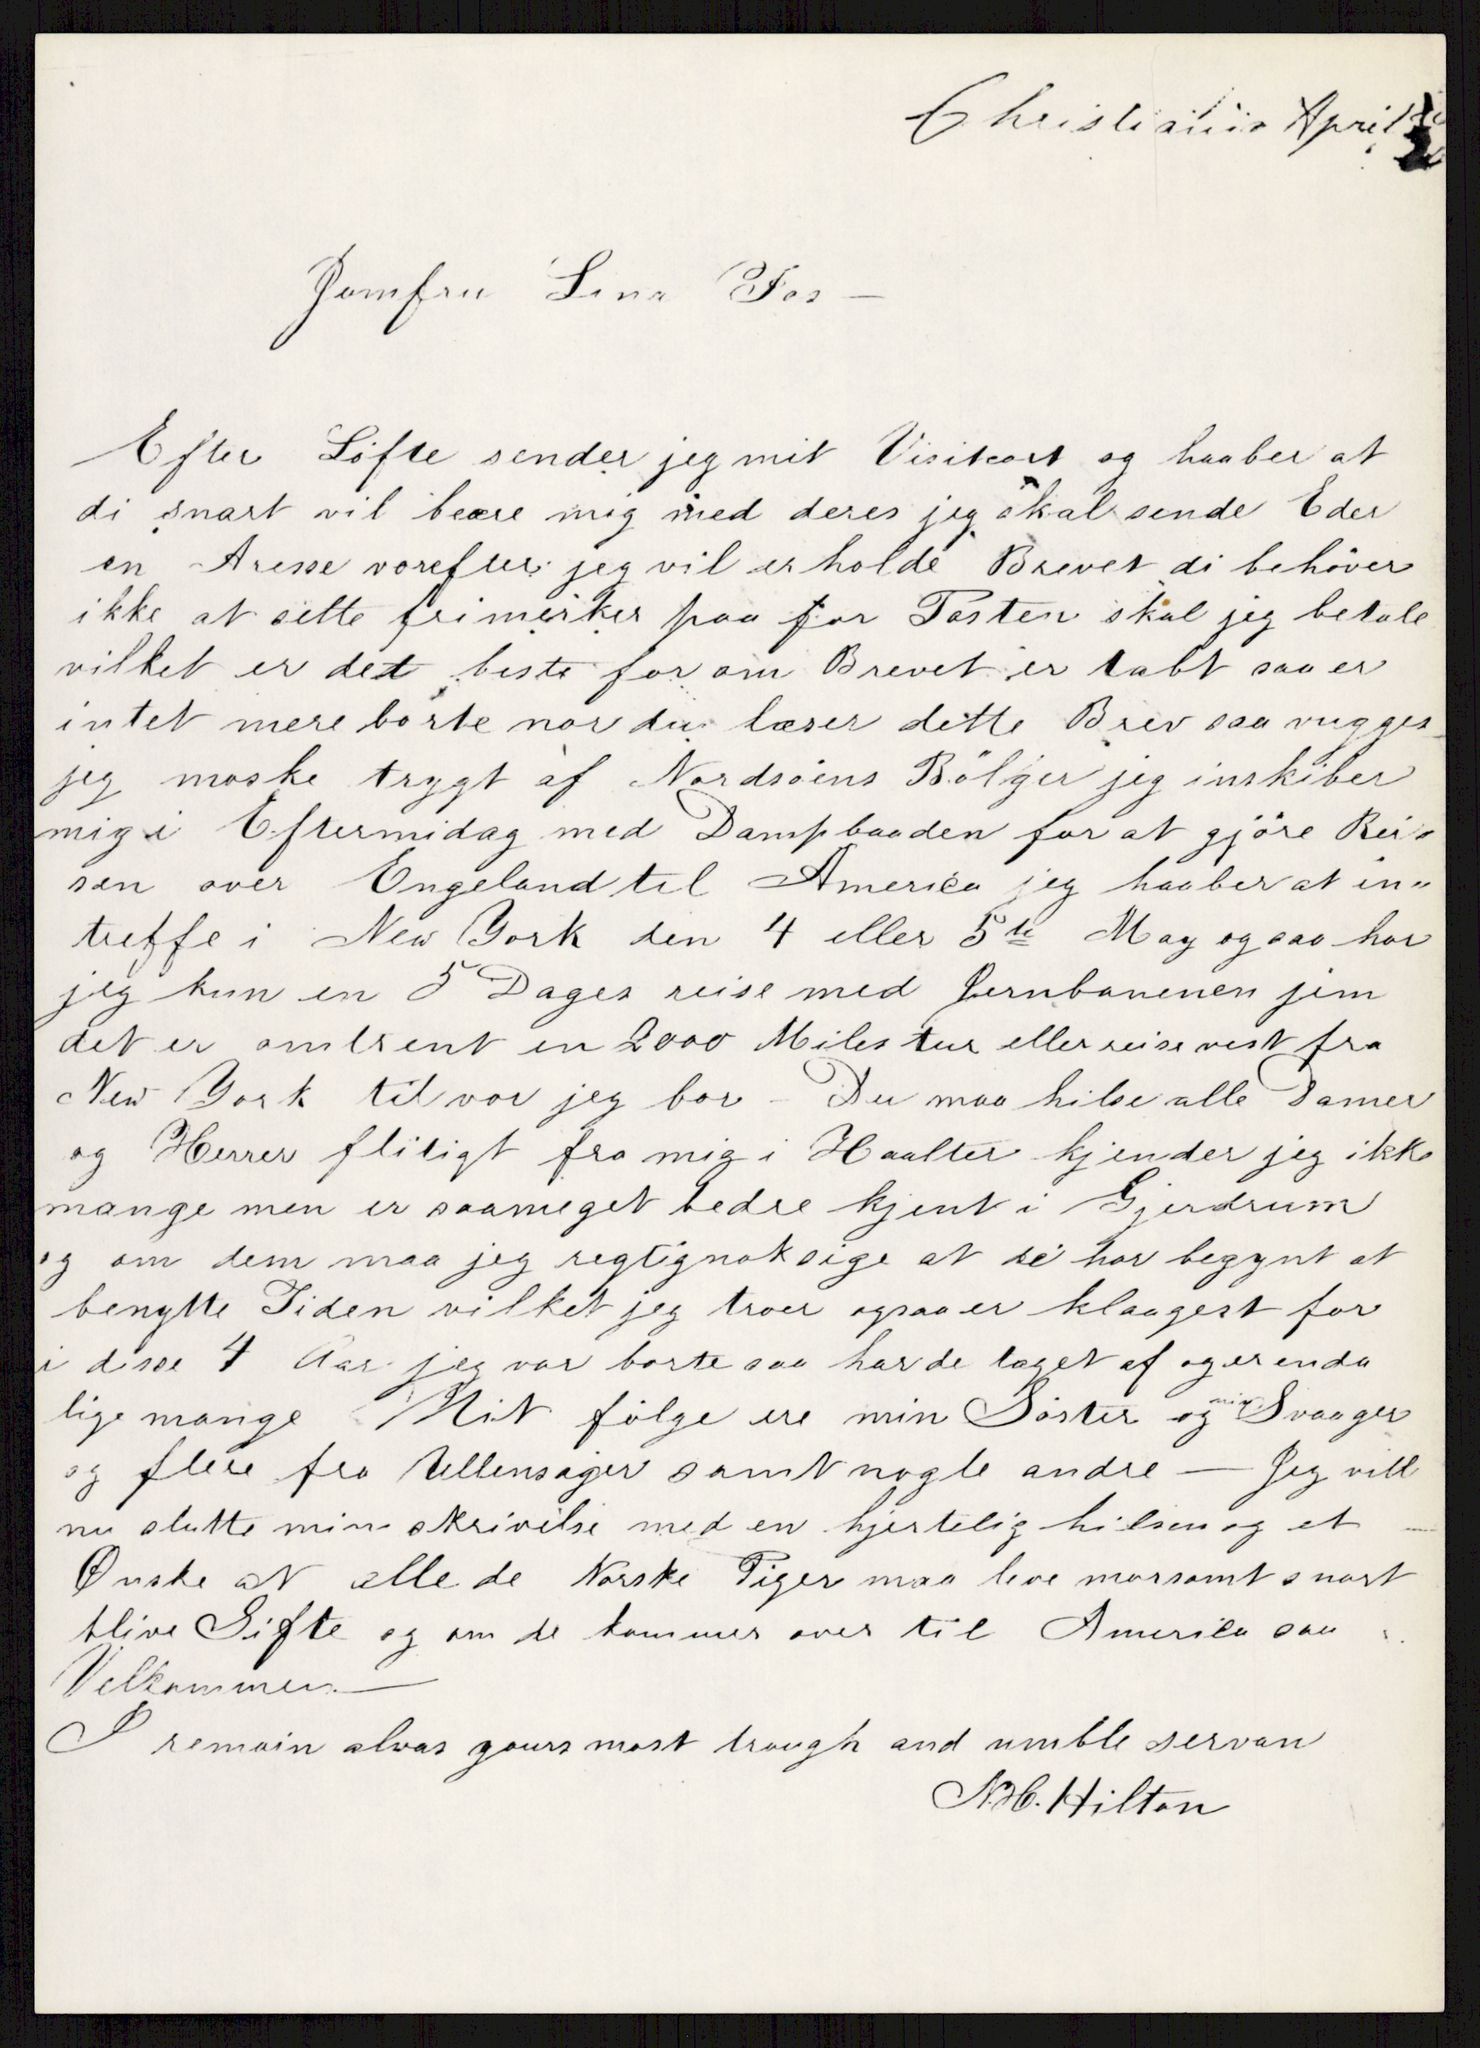 Christiania April
Jomfru Lina Fos —
Efter Löfte sender jeg mit Visitcart og haaber at
di snart vil beære mig med deres jeg skal sende Eder
en Aresse vorefter jeg vil erholde Brevet di behöver
ikke at sette frimerker paa for Posten skal jeg betale
vilket er det beste for om Brevet er tabt saa er
intet mere borte nor du læser dette Brev saa vugges
jeg moske trygt af Nordsöens Bölger jeg inskiber
mig i Eftermidag med Dampbaaden for at gjöre Rei-
sen over Engeland til America jeg haaber at in-
treffe i New York den 4 eller 5te May og saa har
jeg kun en 5 Dages reise med Jernbanenen jem
det er omtrent en 2000 Miles tur eller reise vest fra
New York til vor jeg bor - Du maa hilse alle Damer
og Herrer flitigt fra mig i Haalter kjender jeg ikke
mange men er saameget bedre kjent i Gjerdrum
og om dem maa jeg regtignok sige at de har begynt at
benytte Tiden vilket jeg troer ogsaa er klaagest for
i disse 4 Aar jeg var borte saa har de taget af og er enda
lige mange Mit fölge ere min Söster og min Svaager
og flere fra Ullensager samt nogle andre — Jeg vill
nu slutte min skrivelse med en hjertelig hilsen og et —
Önske at alle de Norske Piger maa leve morsomt snart
blive Gifte og om de kommer over til America saa
Velkommen. —
I remain alvas yours most trough and umble servan
N.H. Hilton